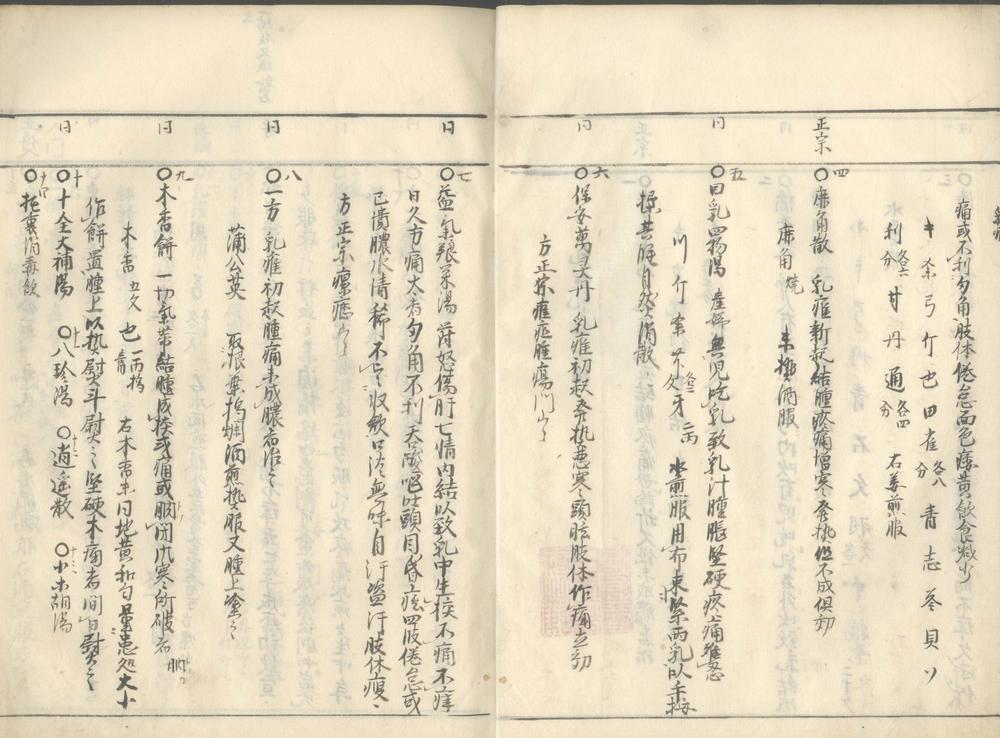 痛或不利勾角肢体倦怠面色痿黄飲食减少
弓 竹 也 田 青 志 参 貝
利 甘 丹 通 右姜煎服
正宗
四
○鹿角散 乳癰新起結腫疼痛增寒發热但不成俱効
鹿角 燒 末 酒服
五
同
○回乳四物湯 產婦無児吃乳致乳汁腫脹堅硬疼痛難忍
川 竹 牙 二両 水煎服用布束緊両乳以手揉
按其腫自然消散
六
同
○保安萬灵丹 乳癰初起發热悪寒頭眩肢体作痛立効
方正宗癰疽腫瘍門ニ
七
同
○益氣養荣湯 治怒傷肝七情内結以致乳中生核不痛不痒
日久方痛大者勾角不利吞酸嘔吐頭目昏眩四肢倦怠或
已潰膿水清稀不亡收歛口淡無味自汗盗汗肢体瘦
方正宗瘰癧
八
同
○一方 乳癰初起腫痛未成膿者治之
蒲公英 取根葉搗爛酒煎热服又腫上塗之
九
同
○木香餅 一切氣滞結腫成核或痛或閃肭风寒所破者
木香 五文 也 一両 右木香末同地黄和匀量患処大小
作餅置腫上以热熨斗熨之堅硬木痛者間日熨之
十
同
○十全大補湯 十一 ○八珍湯 十二 ○逍遥散 十三 ○小柴胡湯
十四
○托裏消毒飲